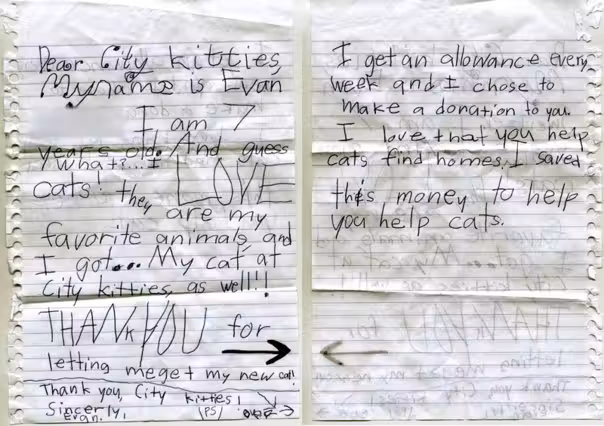 Dear City kitties,
My name is Evan
I am 7
years old. And guess
what?... I
cats! they LOVE
are my
favorite animals and
I got... My cat at
City kitties, as well!!
THANK YOU for
letting me get my new cat!
Thank you, City kitties!
Sincerly,
Evan.
(PS) over →
I get an allowance every
week and I chose to
make a donation to you.
I love that you help
cats find homes. I saved
this money to help
you help cats.